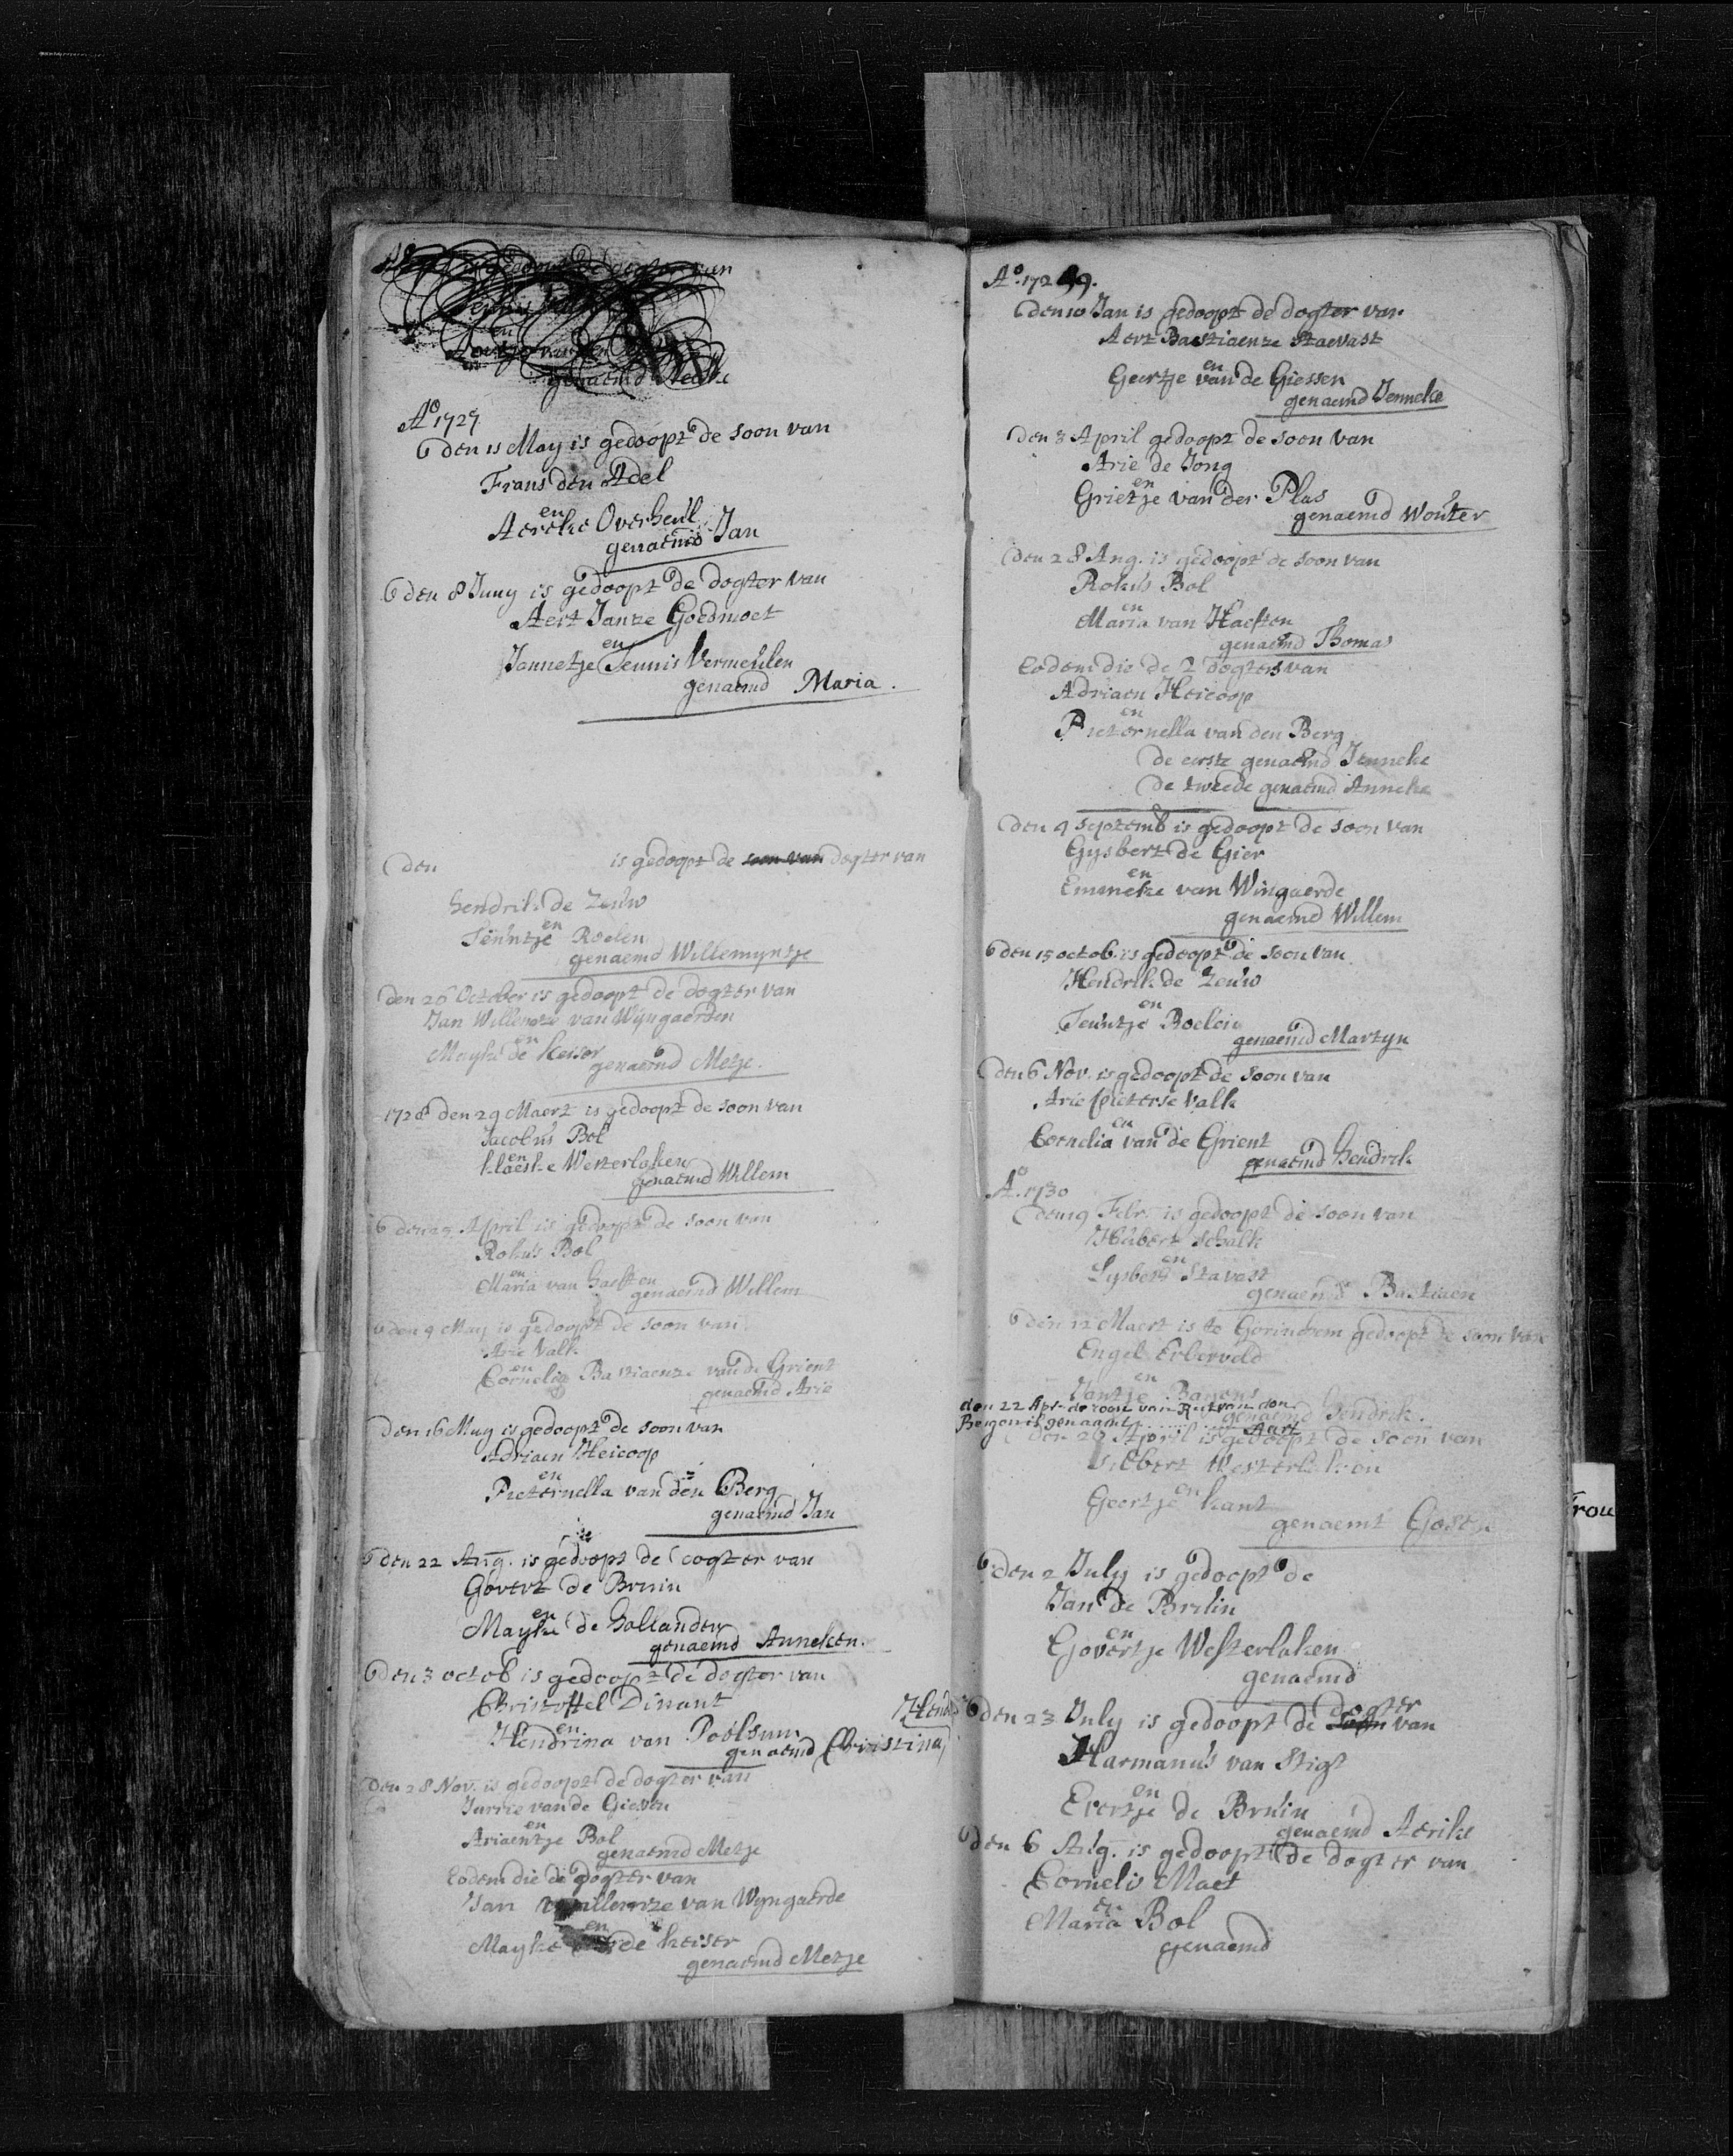 is gedoopt de dogter van
en
genaemd
Ao 1727
den 11 May is gedoopt de soon van
Frans den Adel
en
Aereke Overheul
genaemd Jan
den 8 Juny is gedoopt de dogter van
Aert Janze Goedmoet
en
Jannetje Teunis Vermeulen
genaemd Maria.
den is gedoopt de soon van dogter van
hendrik de Zeuw
en
Teuntje Roelen
genaemd Willemyntje
den 26 October is gedoopt de dogter van
Jan Willemze van Wyngaerden
en
Mayke de Keiser
genaemd Metje.
1728 den 29 Maert is gedoopt de soon van
Jacobus Bol
en
klaeske Westerlaken
genaemd Willem
den 25 April is gedoopt de soon van
Rokus Bol
en
Maria van haeften
genaemd Willem
den 9 May is gedoopt de soon van
Arie Valk
en
Cornelia Bastiaenze van de Grient
genaemd Arie
den 16 May is gedoopt de soon van
Adriaen Heicoop
en
Pieternella van den Berg
genaemd Jan
den 22 Aug. is gedoopt de dogter van
Govert de Bruin
en
Mayke de hollander
genaemd Anneken.
den 3 octob is gedoopt de dogter van
Christoffel Dinant
en
Hendrina van Poolsum
genaemd Christina
den 28 Nov. is gedoopt de dogter van
Jurrie van de Giesen
en
Ariaentje Bol
genaemd Metje
Eodem die de dogter van
Jan Willemze van Wyngaerde
en
Mayke de keiser
genaemd Metje
Ao. 1729.
den 10 Jan is gedoopt de dogter van
Aert Bastiaenze Staevast
en
Geertje van de Giessen
genaemd Jenneke
den 3 April gedoopt de soon van
Arie de Jong
en
Grietje van der Plas
genaemd Wouter
den 28 Aug. is gedoopt de soon van
Rokus Bol
en
Maria van Haeften
genaemd Thomas
Eodem die de 2 dogters van
Adriaen Heicoop
en
Pieternella van den Berg
de eerste genaemd Jenneke
de tweede genaemd Anneke
den 4 septemb is gedoopt de soon van
Gysbert de Gier
en
Emmeke van Wingaerde
genaemd Willem
den 15 octob. is gedoopt de soon van
Hendrik de Zeuw
en
Teuntje Roelen
genaemd Martyn
den 6 Nov. is gedoopt de soon van
Arie Pieterse Valk
en
Cornelia van de Grient
genaemd hendrik
Ao. 1730
den 19 Febr. is gedoopt de soon van
Hubert Schalk
en
Lysbeth Stavast
genaemd Bastiaen
den 12 Maert is te Gorinchem gedoopt de soon van
Engel Erberveld
en
Jantje Bayens
genaemd hendrik.
den 22 Apr. de zoon van Rut van den
Bergen is genaamt Aart
den 26 April is gedoopt de soon van
Westerlaken
en
Geertje kant
genaemt
den 2 July is gedoopt de
Jan de Bruin
en
Govertje Westerlaken
genaemd
den 23 July is gedoopt de soon dogter van
Harmanus van Stigt
en
Evertje de Bruin
genaemd Aerike
den 6 Aug. is gedoopt de dogter van
Cornelis Maet
en
Maria Bol
genaemd
Trou